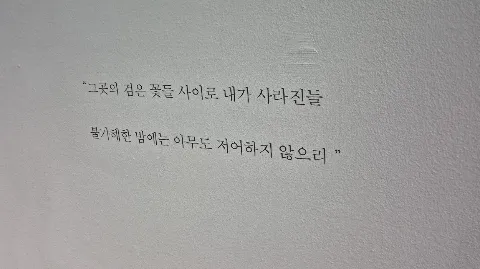 "그곳의 검은 꽃들 사이로 내가 사라진들
불가해한 밤에는 아무도 저어하지 않으리"